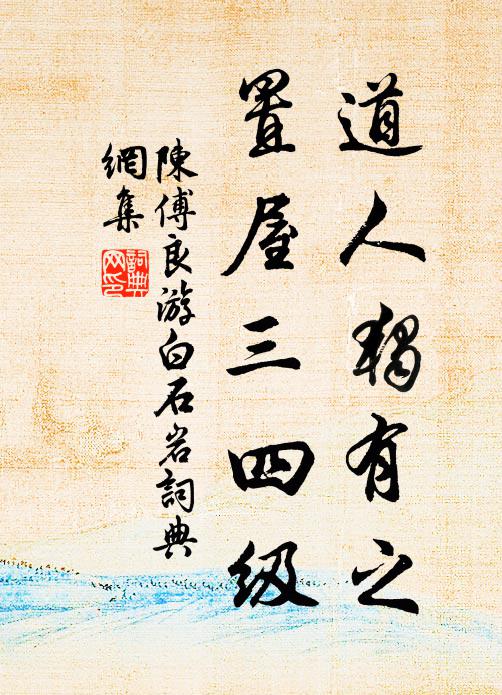 道人獨有之
置屋三四级
陳傅良游白石岩詞典
網集
詞典
网印